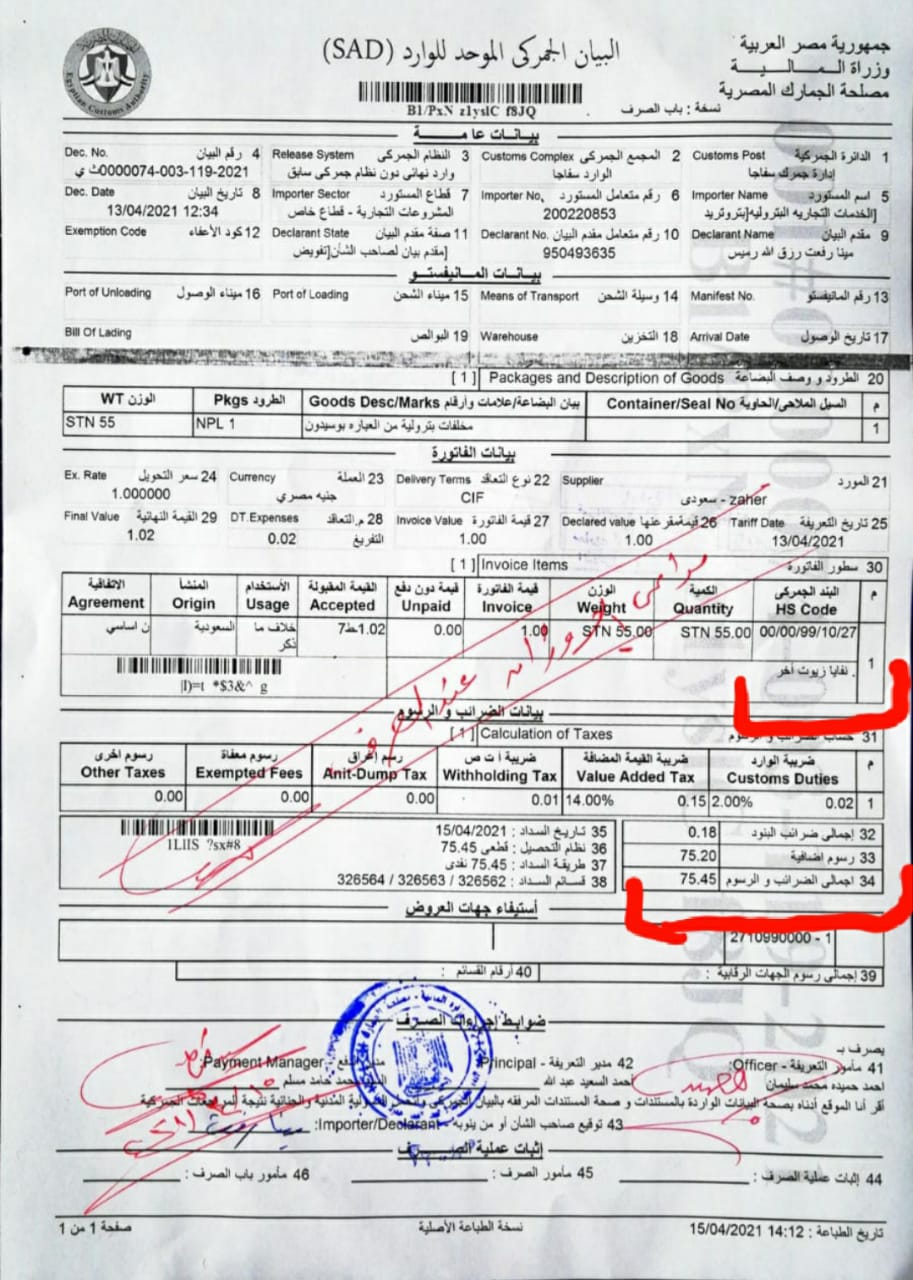 جمهورية مصر العربية
وزراة المـــالـــية
مصلحة الجمارك المصرية
البيان الجمركى الموحد للوارد (SAD)
Egyptian Customs Authority
نسخة : باب الصرف
B1/PxN z1yslC f8JQ
بيـانـات عا مـــة
1 الدائرة الجمركية Customs Post 2 المجمع الجمركى Customs Complex 3 النظام الجمركى Release System 4 رقم البيان Dec. No.
إدارة جمرك سفاجا الوارد سفاجا وارد نهائى دون نظام جمركى سابق 0000074-003-119-2021ث ي
5 اسم المستورد Importer Name 6 رقم متعامل المستورد Importer No. 7 قطاع المستورد Importer Sector 8 تاريخ البيان Dec. Date
الخدمات التجاريه البتروليه]بتروتريد 200220853 المشروعات التجارية - قطاع خاص 13/04/2021 12:34
9 مقدم البيان Declarant Name 10 رقم متعامل مقدم البيان Declarant No. 11 صفة مقدم البيان Declarant State 12 كود الأعفاء Exemption Code
مينا رفعت رزق الله رميس 950493635 مقدم بيان لصاحب الشأن]تفويض
بيانـات المـــانيفستـو
13 رقم المانيفستو Manifest No. 14 وسيلة الشحن Means of Transport 15 ميناء الشحن Port of Loading 16 ميناء الوصول Port of Unloading
17 تاريخ الوصول Arrival Date 18 التخزين Warehouse 19 البوالص Bill Of Lading
20 الطرود و وصف البضاعة Packages and Description of Goods [ 1 ]
م السيل الملاحى/الحاوية Container/Seal No بيان البضاعة/علامات وأرقام Goods Desc/Marks الطرود Pkgs الوزن WT
1 مخلفات بترولية من العباره بوسيدون NPL 1 STN 55
بيانات الفاتورة
21 المورد Supplier 22 نوع التعاقد Delivery Terms 23 العملة Currency 24 سعر التحويل Ex. Rate
zaher - سعودى CIF جنيه مصري 1.000000
25 تاريخ التعريفة Tariff Date 26 قيمةمقرعنها Declared value 27 قيمة الفاتورة Invoice Value 28 م.التعاقد DT.Expenses 29 القيمة النهائية Final Value
13/04/2021 1.00 1.00 التفريغ 0.02 1.02
30 سطور الفاتورة Invoice Items [ 1 ]
م البند الجمركى HS Code الكمية Quantity الوزن Weight قيمة الفاتورة Invoice قيمة دون دفع Unpaid القيمة المقبولة Accepted الأستخدام Usage المنشأ Origin الاتفاقية Agreement
1 00/00/99/10/27 STN 55.00 STN 55.00 1.00 0.00 1.02ط7 خلاف ما ذكر السعودية ن اساسي
. نفايا زيوت أخر
|l)=t *$3&^ g
بيانات الضرائب و الرسوم
31 حساب الضرائب و الرسوم Calculation of Taxes [ 1 ]
م ضريبة الوارد Customs Duties ضريبة القيمة المضافة Value Added Tax ضريبة ا ت ص Withholding Tax رسم إغراق Anit-Dump Tax رسوم معفاة Exempted Fees رسوم اخرى Other Taxes
1 0.02 2.00% 0.15 14.00% 0.01 0.00 0.00 0.00
32 إجمالى ضرائب البنود 0.18
33 رسوم اضافية 75.20
34 اجمالى الضرائب و الرسوم 75.45
35 تـاريخ السداد : 15/04/2021
36 نظام التحصيل : قطعى 75.45
37 طريقـة السداد : 75.45 نقدى
38 قسـائم السداد : 326562 / 326563 / 326564
1LIIS ?sx#8
أستيفاء جهات العروض
1 - 2710990000
39 إجمالى رسوم الجهات الرقابية : 40 أرقام القسائم :
ضوابط إجراءات الصـرف
يصرف بـ
41 مأمور التعريفة - Officer: 42 مدير التعريفة - Principal مدير الدفع - Payment Manager:
احمد حميده محمد سليمان أحمد السعيد عبد الله السيد محمد حامد مسلم
أقر أنا الموقع أدناه بصحة البيانات الواردة بالمستندات و صحة المستندات المرفقه بالبيان الجمركي وأتحمل المسئولية المدنية والجنائية نتيجة المراجعات الجمركية
43 توقيع صاحب الشأن أو من ينوبه - Importer/Declarant:
إثبات عملية الصـــرف
44 إثبات عملية الصرف : 45 مأمور الصرف : 46 مأمور باب الصرف :
تاريخ الطباعة : 14:12 15/04/2021 نسخة الطباعة الأصلية صفحة 1 من 1